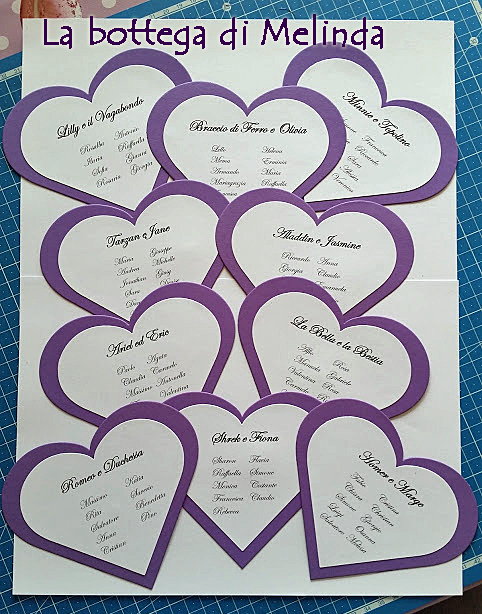 La bottega di Melinda
Lilly e il Vagabondo
Rosalba Antonio
Ilaria Raffaella
Sofia Gianni
Rosario Giorgia
Braccio di Ferro e Olivia
Lello Helena
Mema Erminia
Armando Maria
Mariagrazia Raffaella
Minnie e Topolino
Francesca
Riccardo
Tarzan e Jane
Maria Giuseppe
Andrea Michelle
Jonathan Giusy
Sara Denise
Aladdin e Jasmine
Riccardo Anna
Giorgia Claudio
Emanuela
Ariel ed Eric
Paolo Agata
Claudia Carmelo
Massimo Antonella
Valentina
La Bella e la Bestia
Alfio Rosa
Manuela Gabriele
Valentina Rosa
Carmelo
Romeo e Duchessa
Massimo Katia
Rita Saverio
Salvatore Benedetta
Anna Pino
Cristian
Shrek e Fiona
Sharon Flavia
Raffaella Simone
Monica Costante
Francesca Claudio
Rebecca
Homer e Marge
Fabio Cristina
Chiara Cristian
Simone Giorgio
Luigi Oriana
Salvatore Melissa